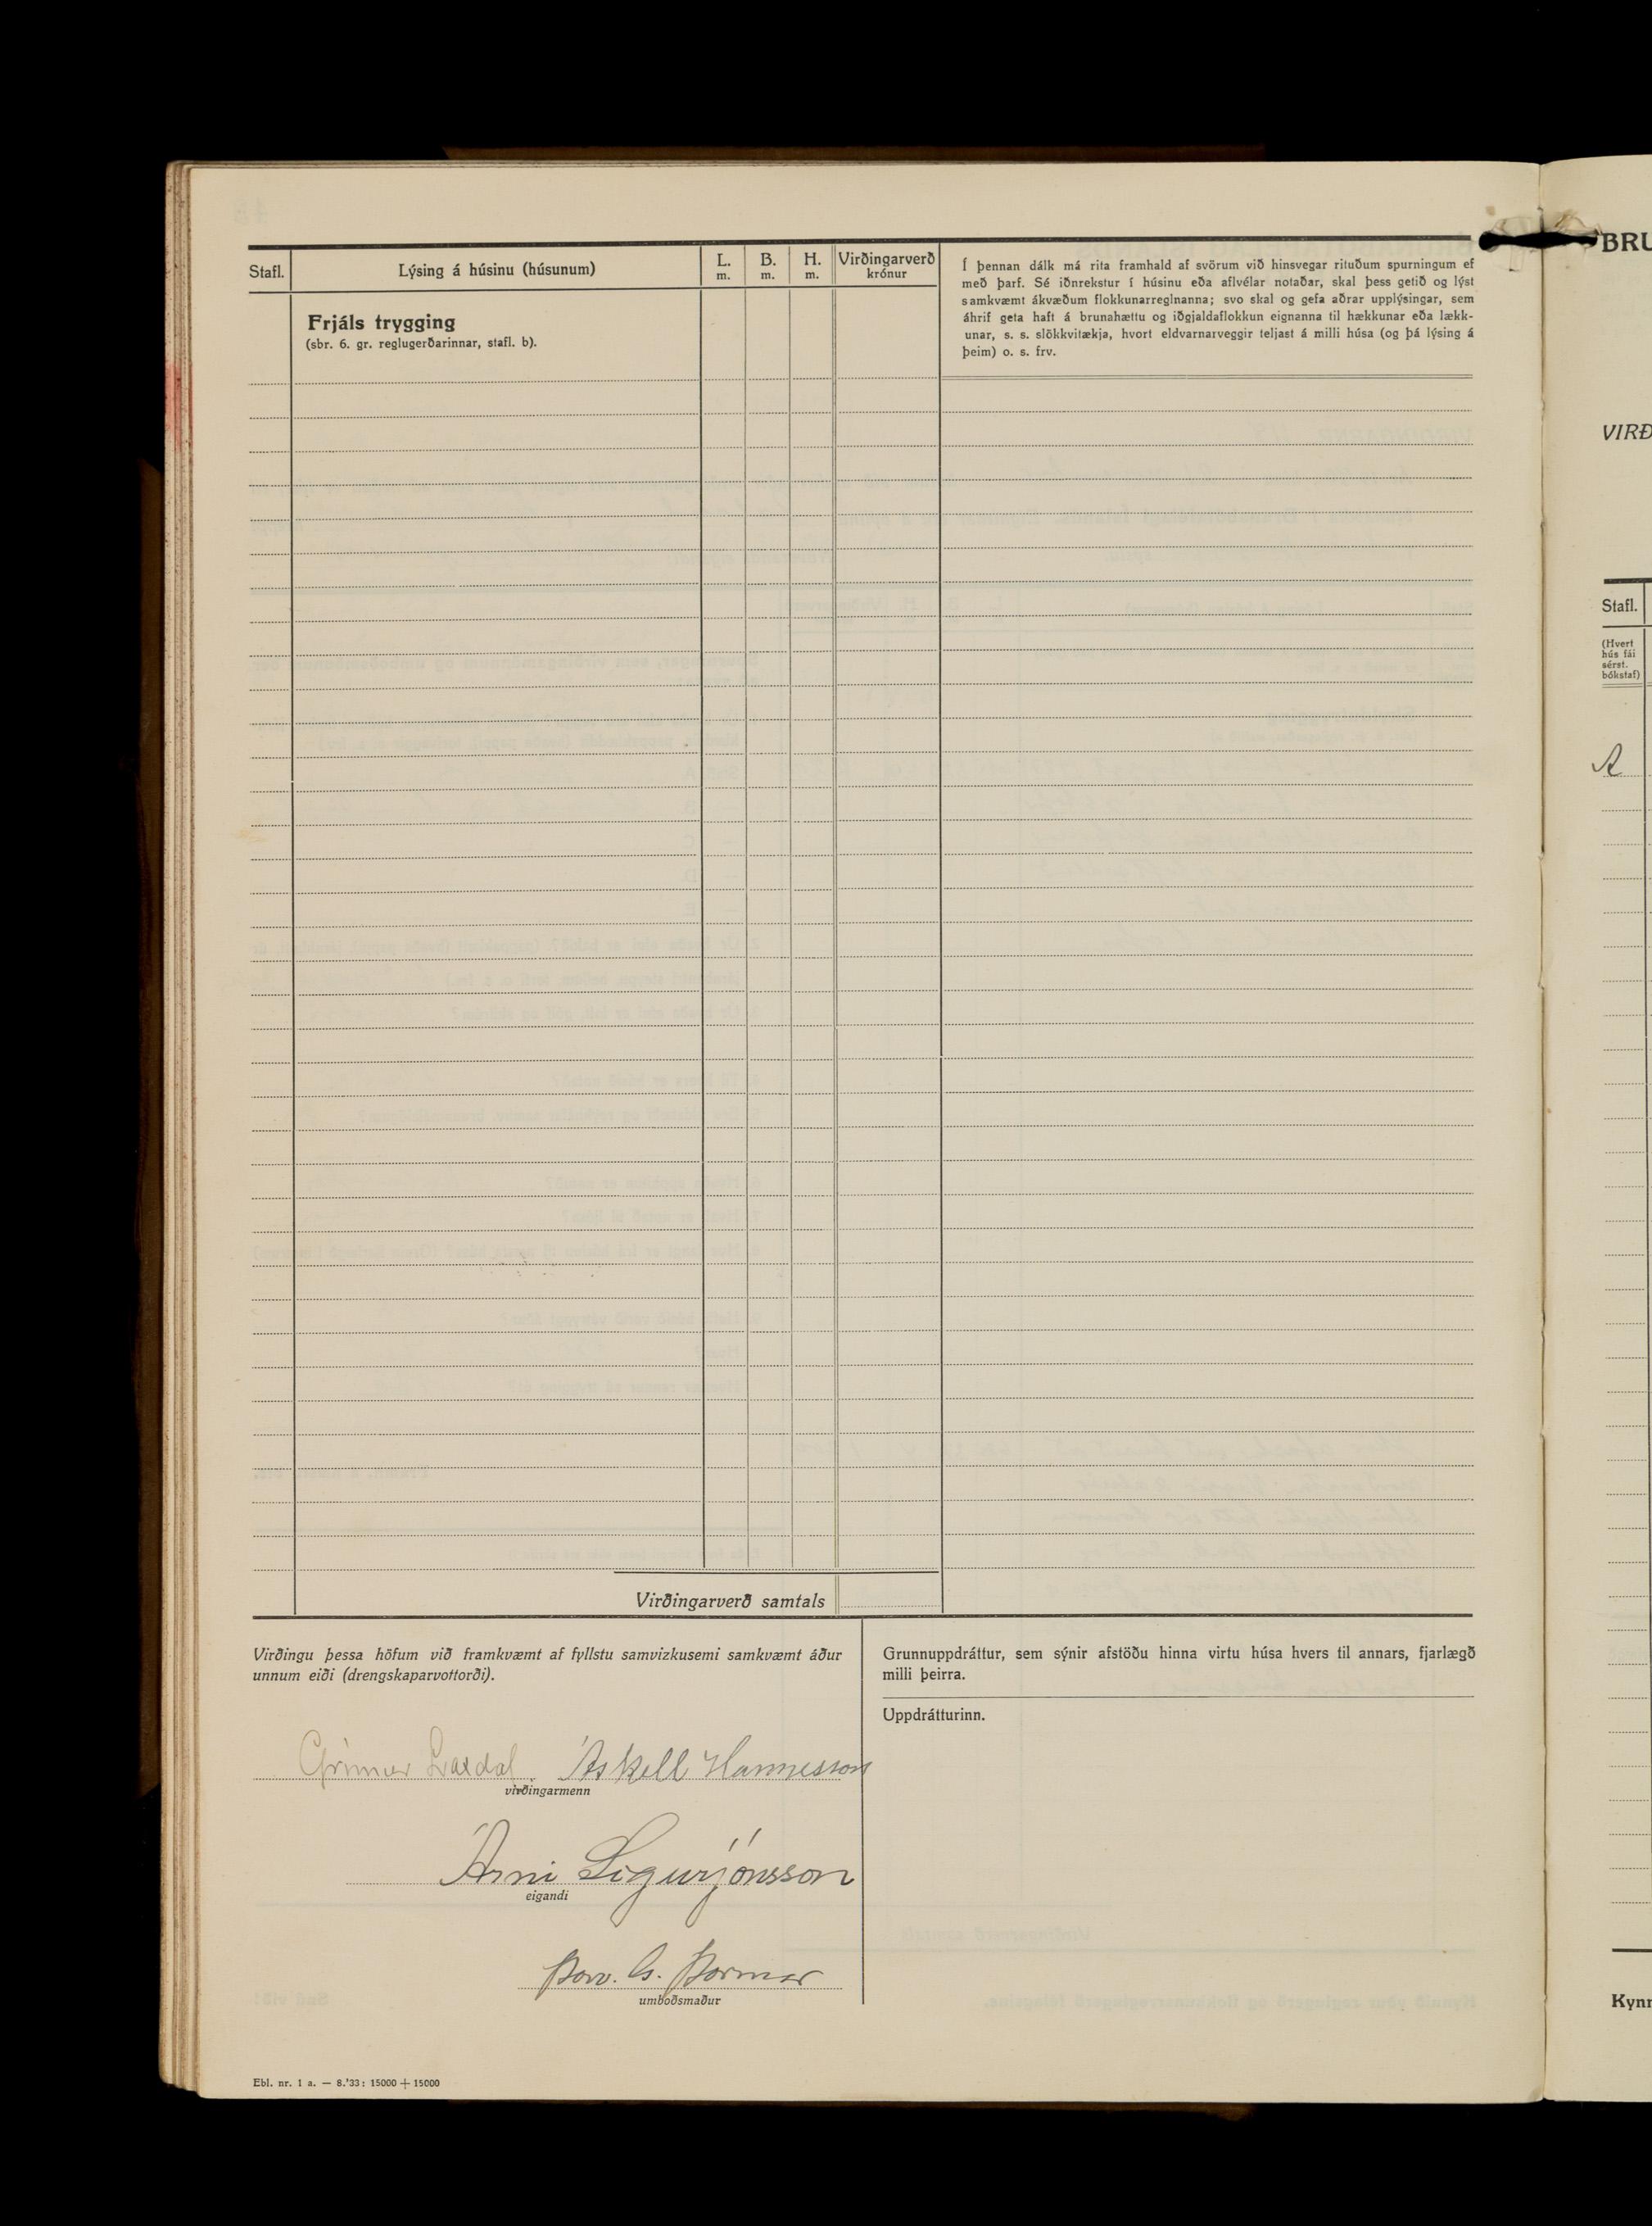 Stafl.
Lýsing á húsinu (húsunum)
L.
m.
B.
m.
H.
m.
Virðingarverð
krónur
Frjáls trygging
(sbr. 6. gr. reglugerðarinnar, stafl. b).
Í þennan dálk má rita framhald af svörum við hinsvegar rituðum spurningum ef
með þarf. Sé iðnrekstur í húsinu eða aflvélar notaðar, skal þess getið og lýst
samkvæmt ákvæðum flokkunarreglnanna; svo skal og gefa aðrar upplýsingar, sem
áhrif geta haft á brunahættu og iðgjaldaflokkun eignanna til hækkunar eða lækk-
unar, s. s. slökkvitækja, hvort eldvarnarveggir teljast á milli húsa (og þá lýsing á
þeim) o. s. frv.
Virðingarverð samtals
Virðingu þessa höfum við framkvæmt af fyllstu samvizkusemi samkvæmt áður
unnum eiði (drengskaparvottorði).
Grímur Laxdal. Áskell Hannesson
virðingarmenn
Árni Sigurjónsson
eigandi
Þorv. G. Þormar
umboðsmaður
Grunnuppdráttur, sem sýnir afstöðu hinna virtu húsa hvers til annars, fjarlægð
milli þeirra.
Uppdrátturinn.
Ebl. nr. 1 a. — 8.'33: 15000 + 15000
BRU
VIRÐ
Stafl.
(Hvert
hús fái
sérst.
bókstaf)
A
Kynn